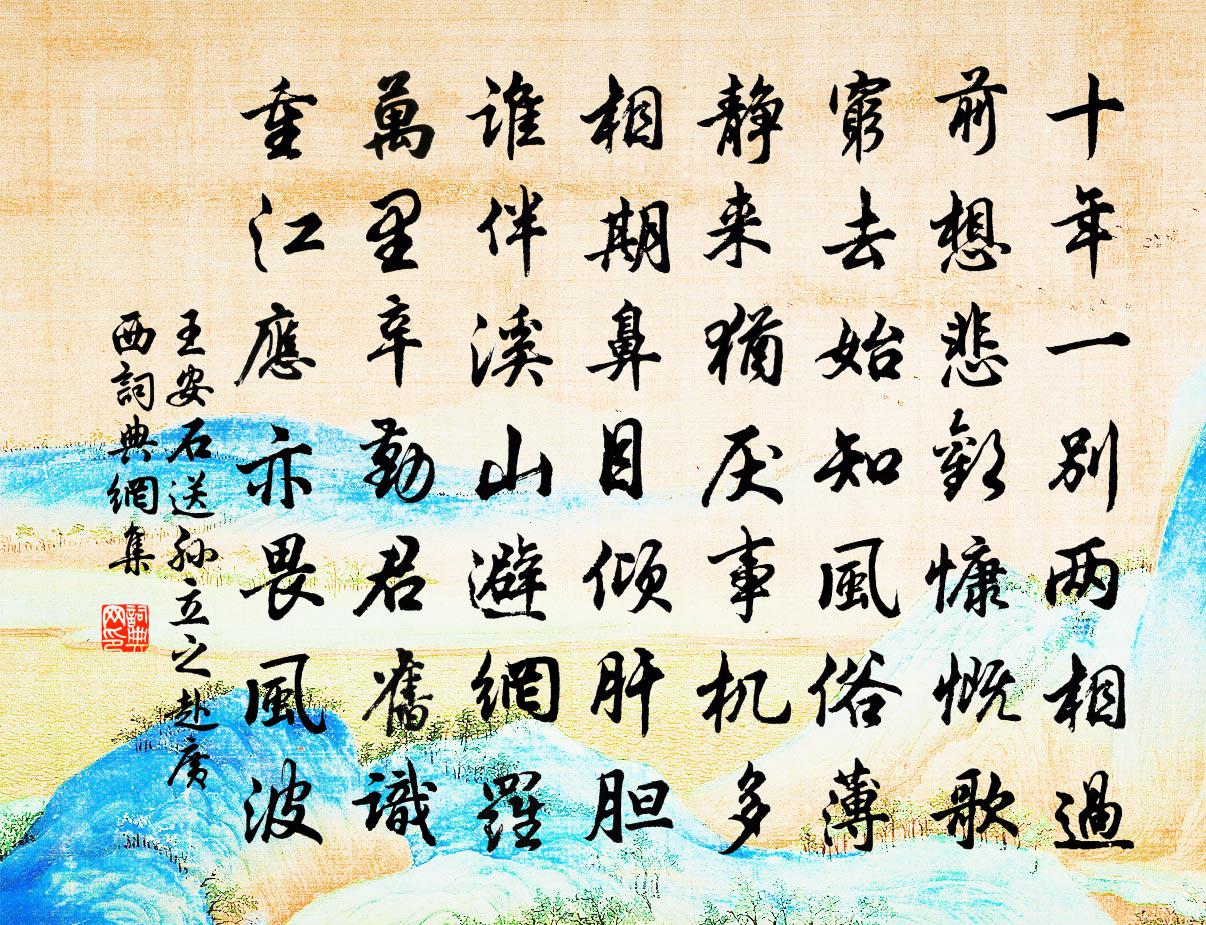 十年一别两相過
前想悲歡慷慨歌
窮去始知風俗薄
静来猶厌事机多
相期鼻目傾肝胆
谁伴溪山避網羅
萬里辛勤君舊識
重江應亦畏風波
王安石送孙立之赴廣
西詞典網集
詞典网印